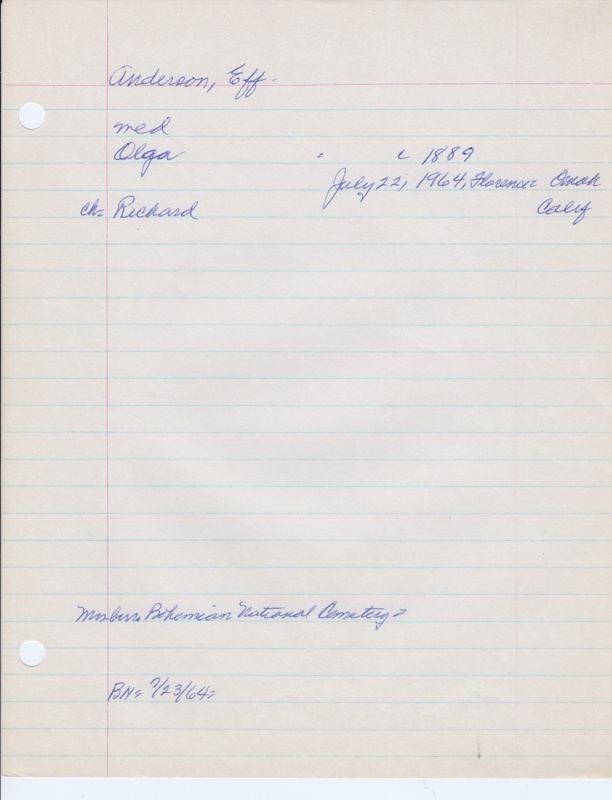 Anderson, Eff.
med
Olga = c 1889
July 22, 1964, Florence= Omah
ch= Richard Calif
Bohemian National Cemetery=
BN= 7/23/64=